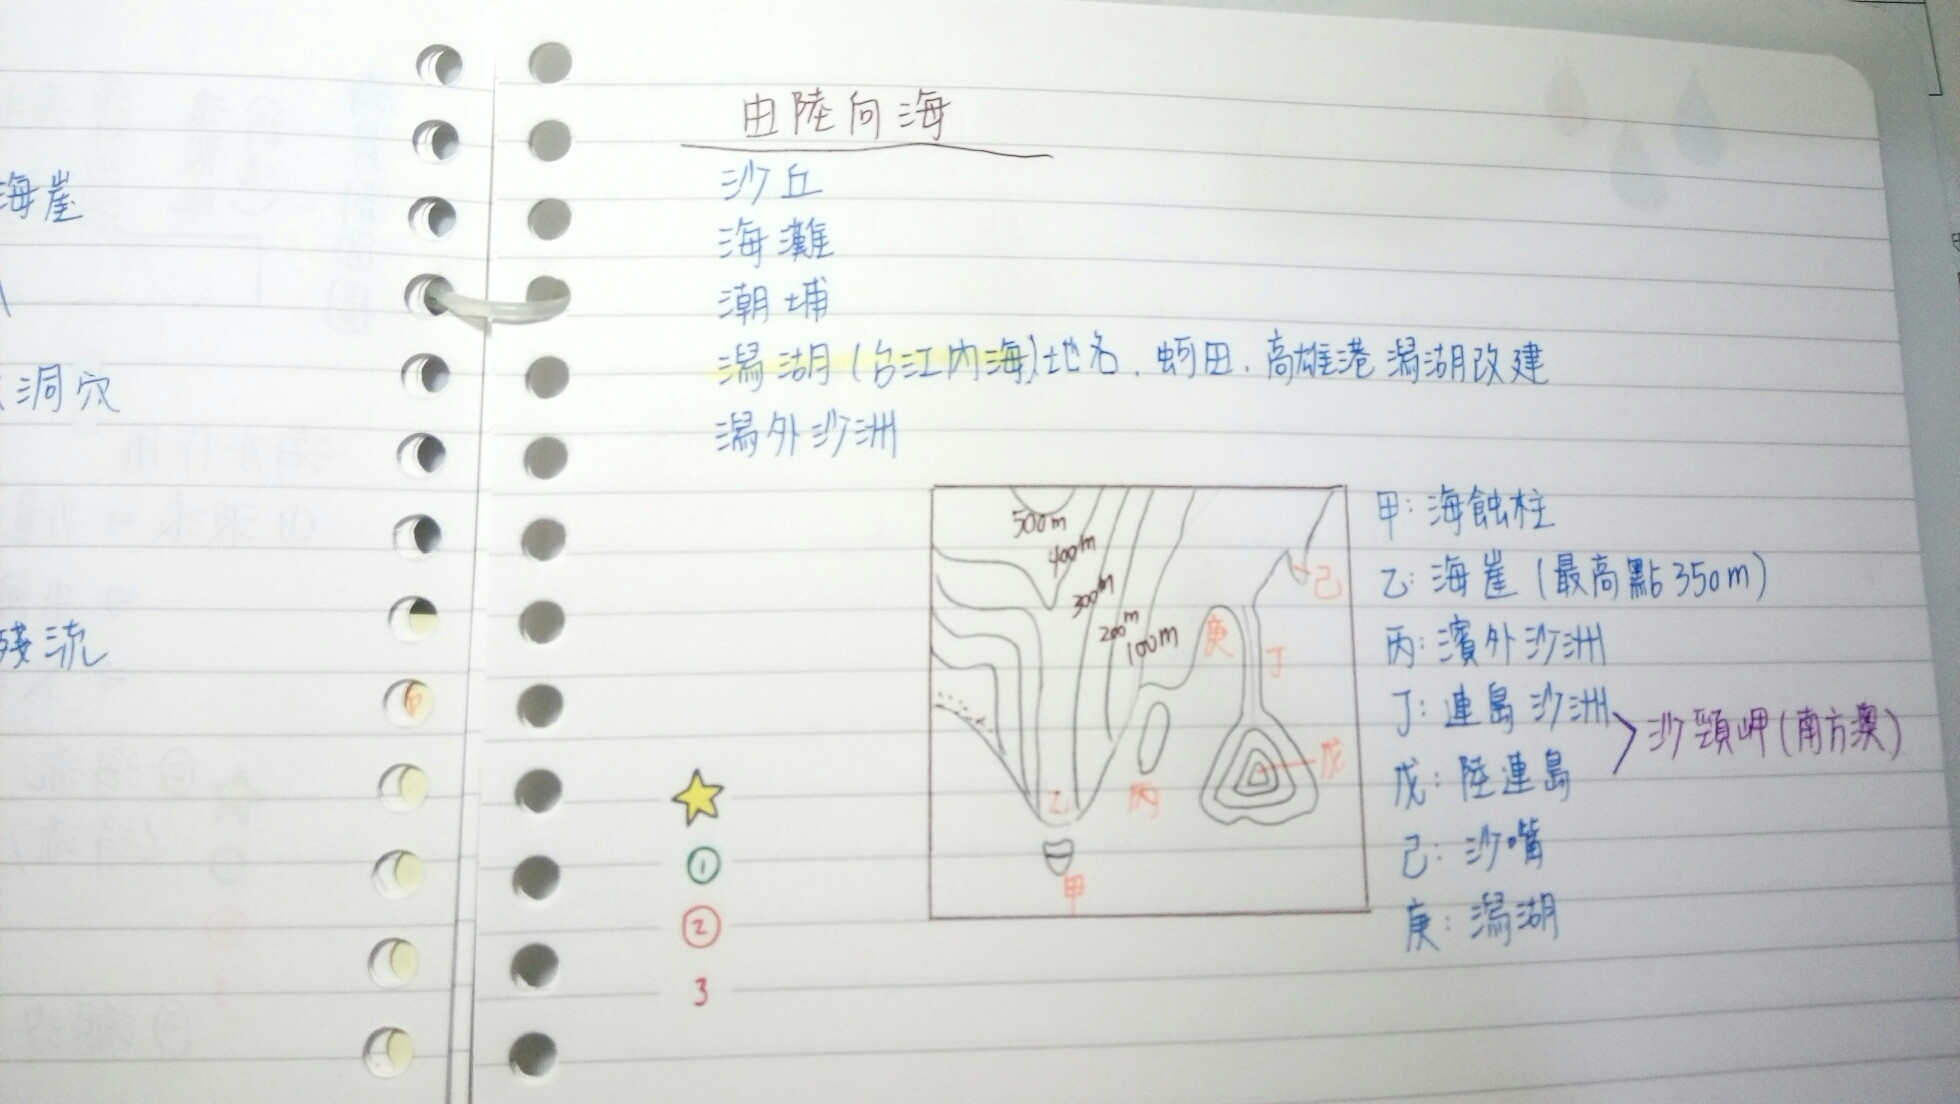 海崖
洞穴
殘流
由陸向海
沙丘
海灘
潮埔
潟湖(台江內海)地名.蚵田.高雄港 潟湖改建
濱外沙洲
500m
400m
300m
200m
100m
己
庚
丁
戊
乙
丙
甲
甲:海蝕柱
乙:海崖(最高點350m)
丙:濱外沙洲
丁:連島沙洲
戊:陸連島
沙頸岬(南方澳)
己:沙嘴
庚:潟湖
①
②
3